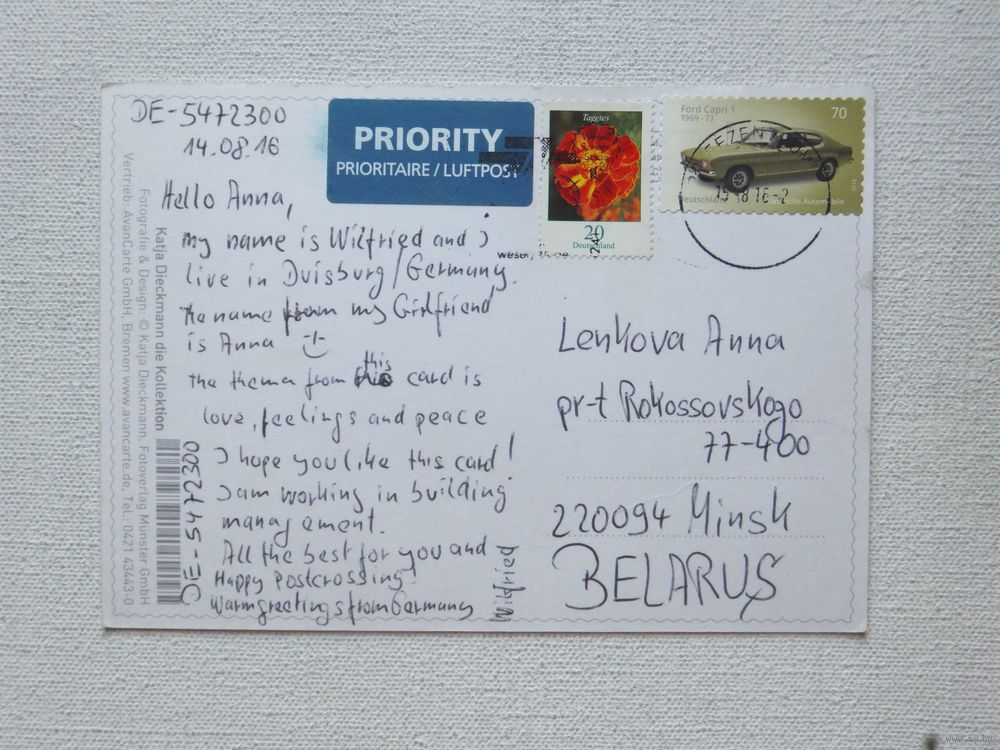 DE-5472300
14.08.16
Hello Anna,
my name is Wilfried and I
live in Duisburg/Germany.
the name from my Girlfriend
is Anna
the thema from this card is
love, feelings and peace
I hope you like this card!
I am working in building
managament.
All the best for you and
Happy Postcrossing!
Warmgreetings from Germany
Wilfried
DE-5472300
Katja Dieckmann die Kollektion
Fotografie & Design: © Katja Dieckmann, Fotoverlag Münster GmbH
Vertrieb: AvanCarte GmbH, Bremen www.avancarte.de, Tel.: 0421 43443-0
PRIORITY
PRIORITAIRE / LUFTPOST
Tagetes
20
Deutschland
Ford Capri 1
1969–73
70
Deutschland
Automobile
Lenkova Anna
pr-t Rokossovskogo
77-400
220094 Minsk
BELARUS
www.ay.by